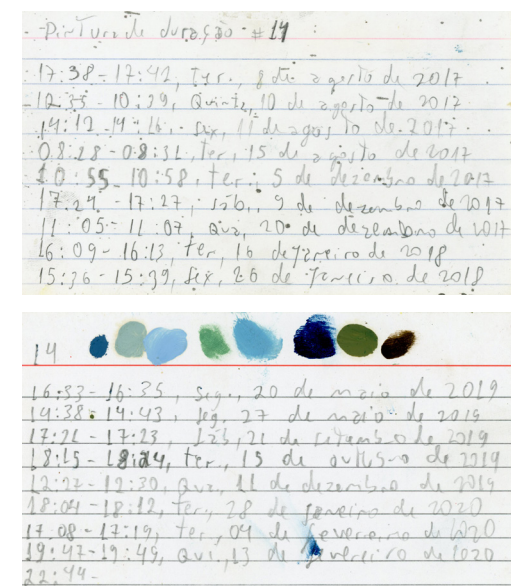 Pintura de duração #14
17:38 - 17:42, ter., 8 de agosto de 2017
10:35 - 10:39, Quinta, 10 de agosto de 2017
14:12 - 14:16, sex, 11 de agosto de 2017
08:28 - 08:31, ter, 15 de agosto de 2017
10:55 - 10:58, ter., 5 de dezembro de 2017
17:24 - 17:27, sáb, 9 de dezembro de 2017
11:05 - 11:07, qua, 20 de dezembro de 2017
16:09 - 16:13, ter, 16 de janeiro de 2018
15:36 - 15:39, sex, 26 de janeiro de 2018
14
16:33 - 16:35, seg., 20 de maio de 2019
14:38 - 14:43, seg, 27 de maio de 2019
17:21 - 17:23, sáb, 21 de setembro de 2019
18:15 - ter., 15 de outubro de 2019
12:27 - 12:30, qua, 11 de dezembro de 2019
18:04 - 18:12, ter, 28 de janeiro de 2020
17:08 - 17:19, ter, 04 de fevereiro de 2020
19:47 - 19:49, qui, 13 de fevereiro de 2020
22:44 -